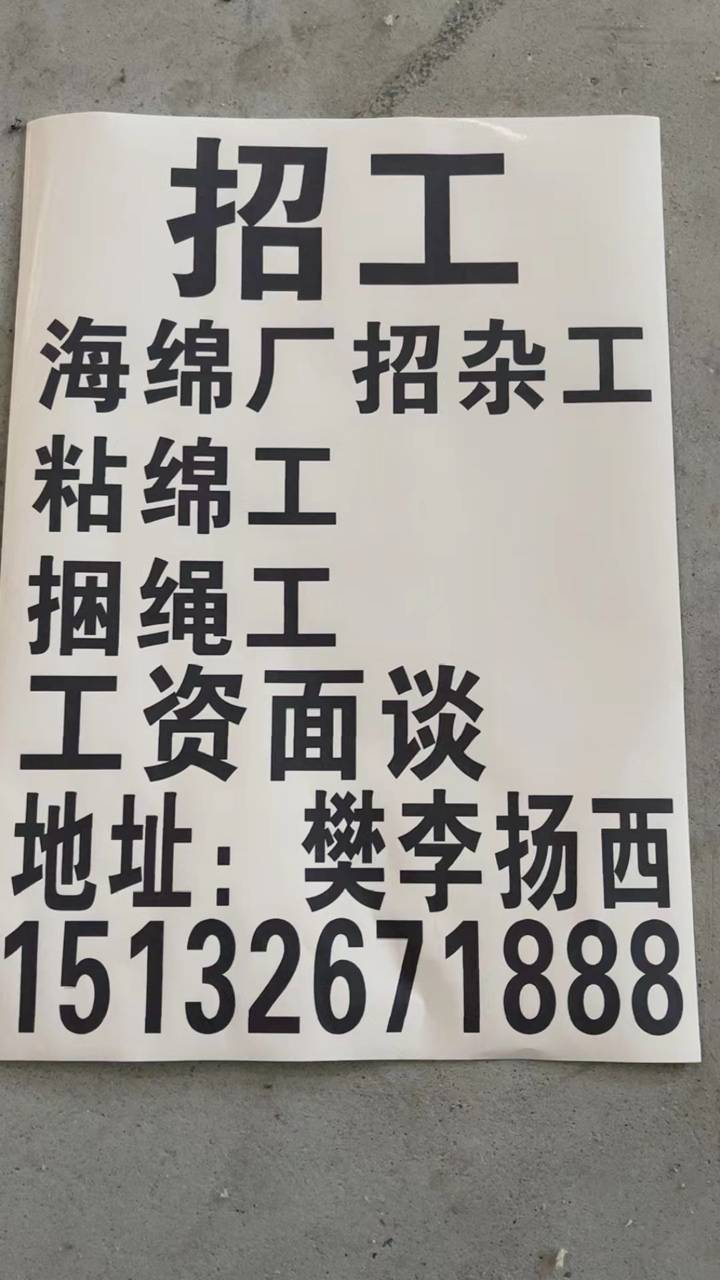 招工
海绵厂招杂工
粘绵工
捆绳工
工资面谈
地址：樊李扬西
15132671888